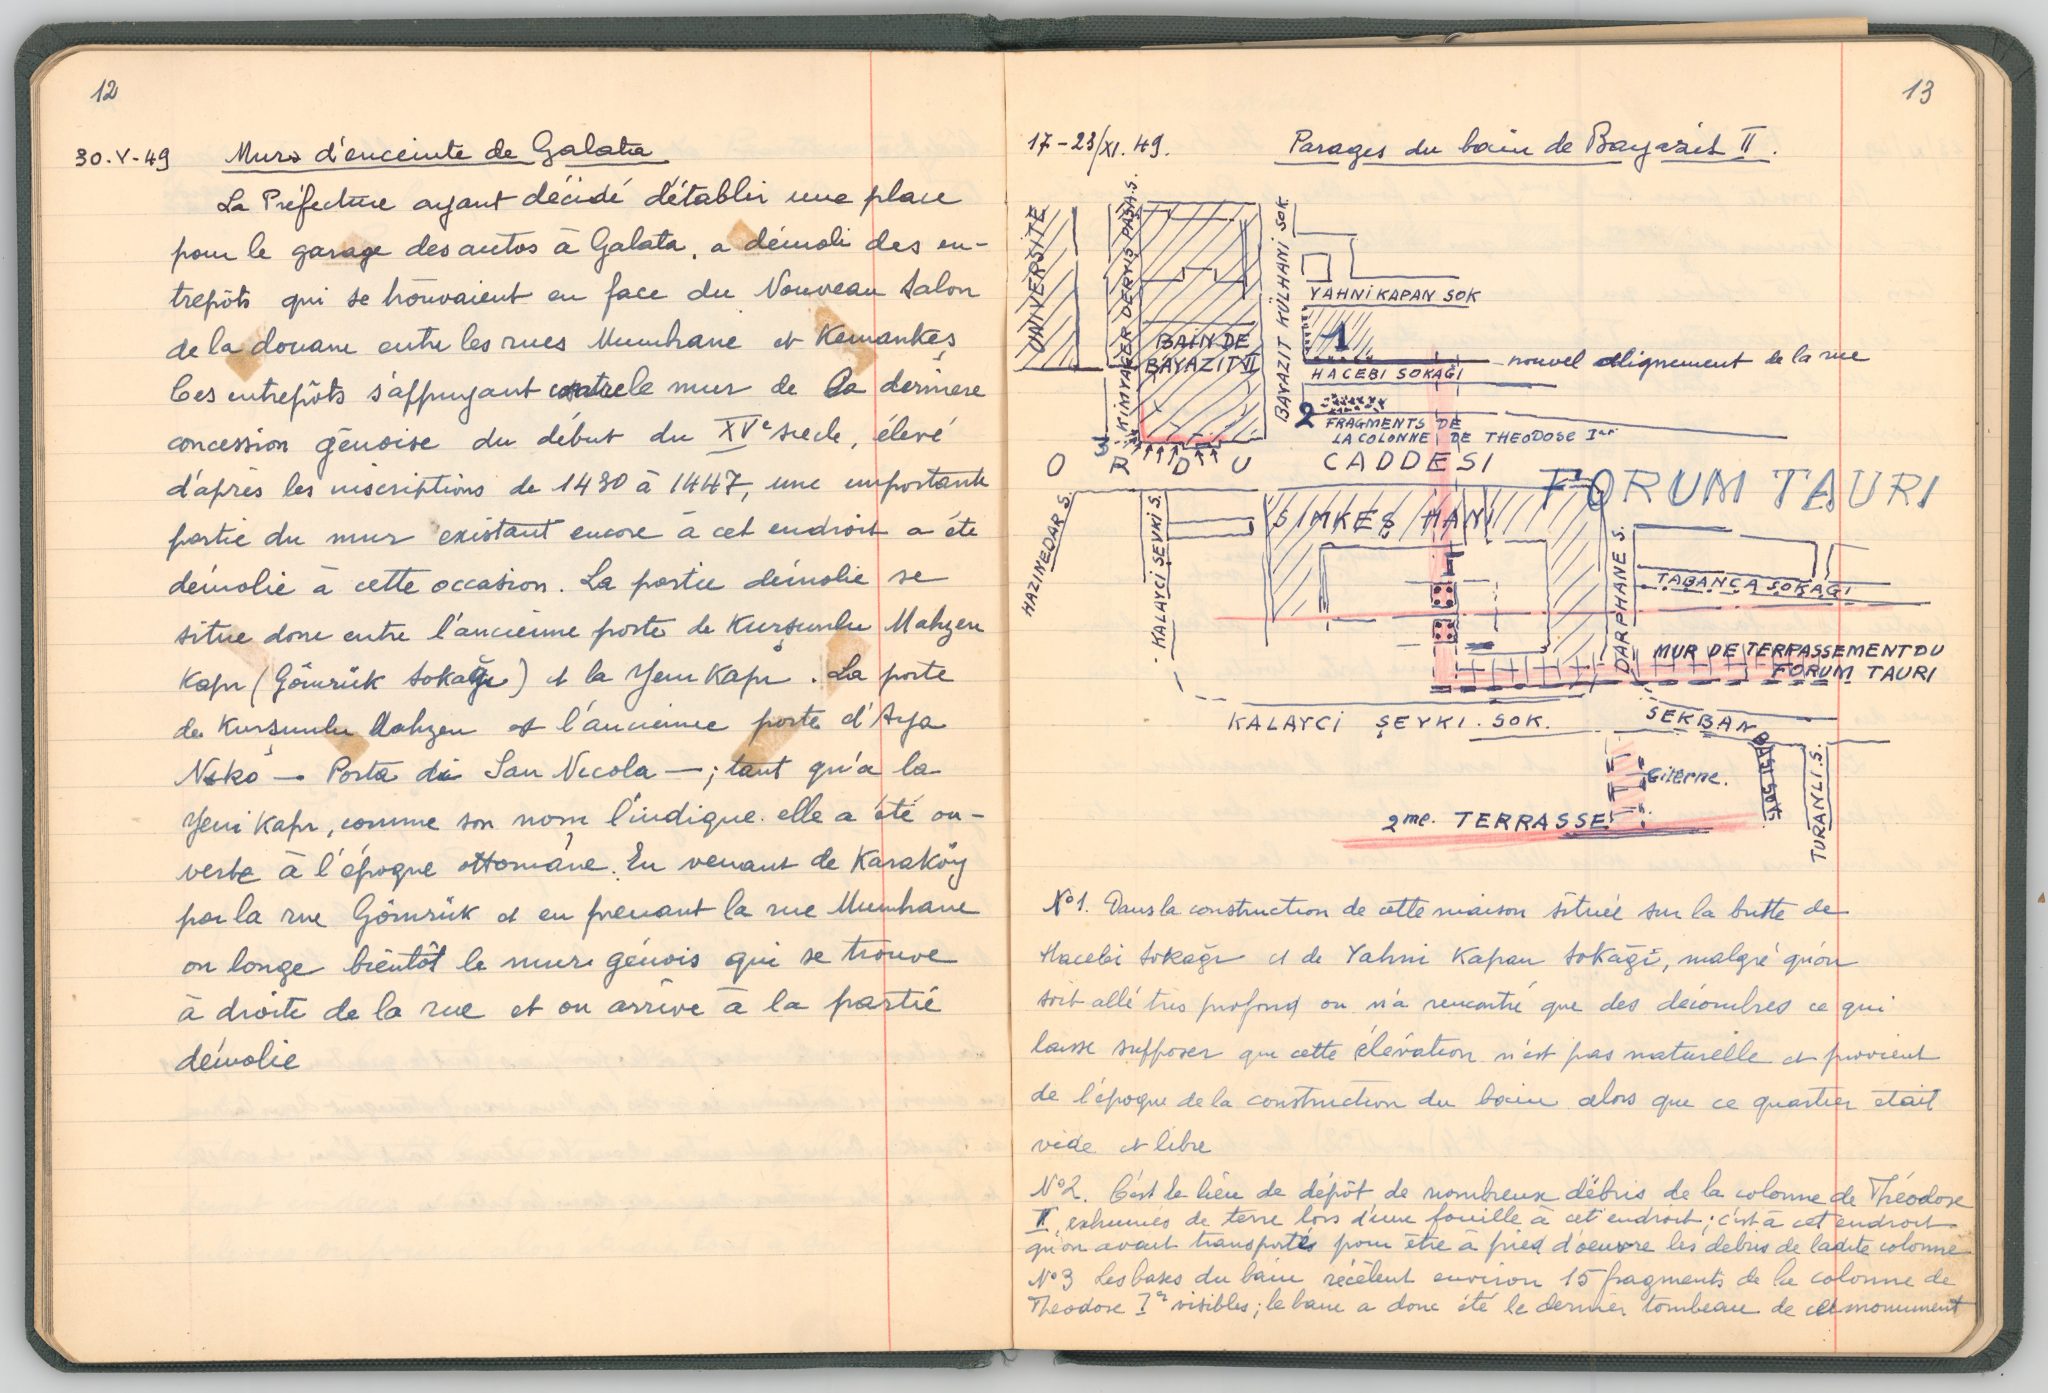 12
30.V-49 Murs d'enceinte de Galata
La Préfecture ayant décidé d'établir une place
pour le garage des autos à Galata, a démoli des en-
trepôts qui se trouvaient en face du Nouveau Salon
de la douane entre les rues Mumhane et Kemankeş
Ces entrepôts s'appuyant contre le mur de la dernière
concession génoise du début du XVe siècle, élevé
d'après les inscriptions de 1430 à 1447, une importante
partie du mur existant encore à cet endroit a été
démolie à cette occasion. La partie démolie se
situe donc entre l'ancienne porte de Kurşunlu Mahzen
Kapı (Gömrük sokağı) et la Yeni Kapı. La porte
de Kurşunlu Mahzen est l'ancienne porte d'Aya
Niko — Porta di San Nicola — ; tant qu'à la
Yeni Kapı, comme son nom l'indique elle a été ou-
verte à l'époque ottomane. En venant de Karaköy
par la rue Gömrük et en prenant la rue Mumhane
on longe bientôt le mur génois qui se trouve
à droite de la rue et on arrive à la partie
démolie
13
17-23/XI.49. Parages du bain de Bayazit II.
UNIVERSITE
KIMYAGER DERVIŞ PAŞA S.
BAIN DE
BAYAZIT II
BAYAZIT KÜLHANI SOK.
YAHNİKAPAN SOK
1
nouvel alignement de la rue
HACEBI SOKAĞI
2
FRAGMENTS DE
LA COLONNE DE THEODOSE Ier
3
ORDU CADDESI
FORUM TAURI
HAZINEDAR S.
KALAYCI ŞEVKI S.
SIMKEŞ HANI
DARPHANE S.
TABANCA SOKAGI
MUR DE TERRASSEMENT DU
FORUM TAURI
KALAYCI ŞEVKI. SOK.
SEKBAN BAŞI SOK
Citerne.
TURANLI S.
2me. TERRASSE
No1. Dans la construction de cette maison située sur la butte de
Hacebi sokağı et de Yahni Kapan sokağı, malgré qu'on
soit allé très profond on n'a rencontré que des décombres ce qui
laisse supposer que cette élévation n'est pas naturelle et provient
de l'époque de la construction du bain alors que ce quartier était
vide et libre
No2. C'est le lieu de dépôt de nombreux débris de la colonne de Théodose
exhumés de terre lors d'une fouille à cet endroit; c'est à cet endroit
qu'on avait transportés pour être à pied d'oeuvre les débris de ladite colonne
No3 Les bases du bain récèlent environ 15 fragments de la colonne de
Theodose Ier visibles; le bain a donc été le dernier tombeau de ce monument